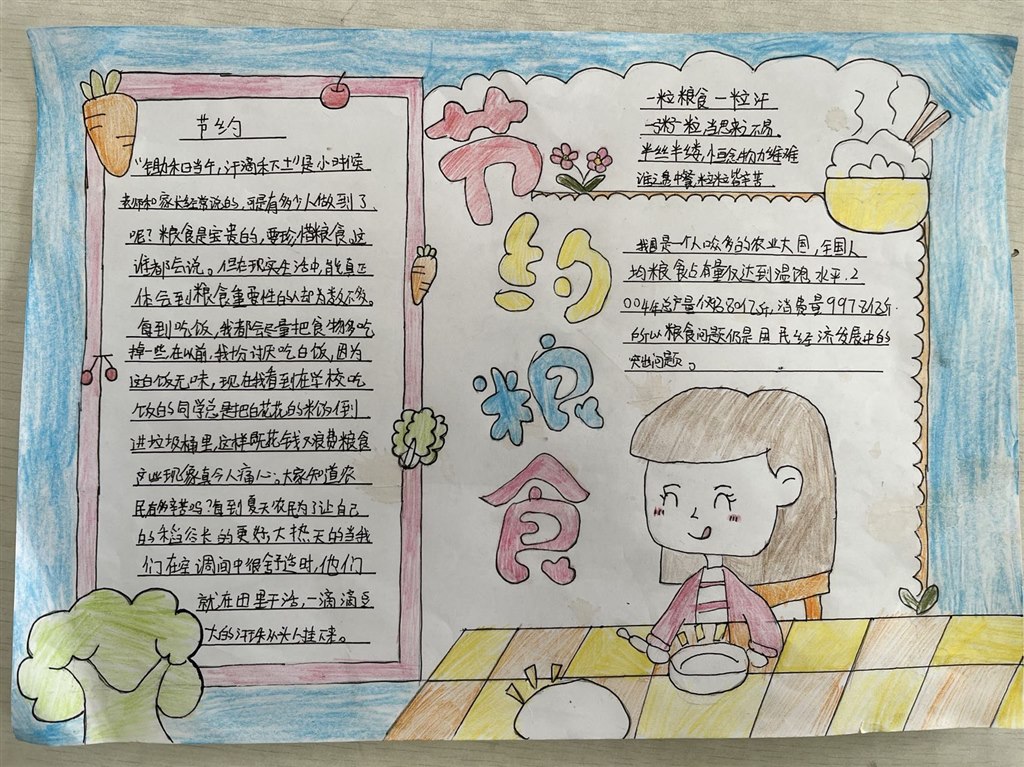 节约
"锄禾日当午，汗滴禾下土"是小时候
老师和家长经常说的，可是有多少人做到了
呢？粮食是宝贵的，要珍惜粮食，这
谁都会说。但在现实生活中，能真正
体会到粮食重要性的人却为数不多。
每到吃饭，我都会尽量把食物多吃
掉一些在以前，我十分讨厌吃白饭，因为
这白饭无味，现在我看到在学校吃
饭的同学总是把白花花的米饭倒
进垃圾桶里，这样既花钱又浪费粮食
这些现象真令人痛心：大家知道农
民有多辛苦吗？每到夏天农民为了让自己
的稻谷长的更好，大热天的当我
们在空调间中很舒适时，他们
就在田里干活，一滴滴豆
大的汗珠从头上挂下来。
节约粮食
一粒粮食一粒汗
一粥一粒，当思来不易
半丝半缕，恒念物力维难
谁知盘中餐，粒粒皆辛苦
我国是一个人口众多的农业大国，全国人
均粮食占有量仅达到温饱水平．2
004年总产量
亿斤，消费量9978亿斤．
所以粮食问题仍是国民经济发展中的
突出问题。